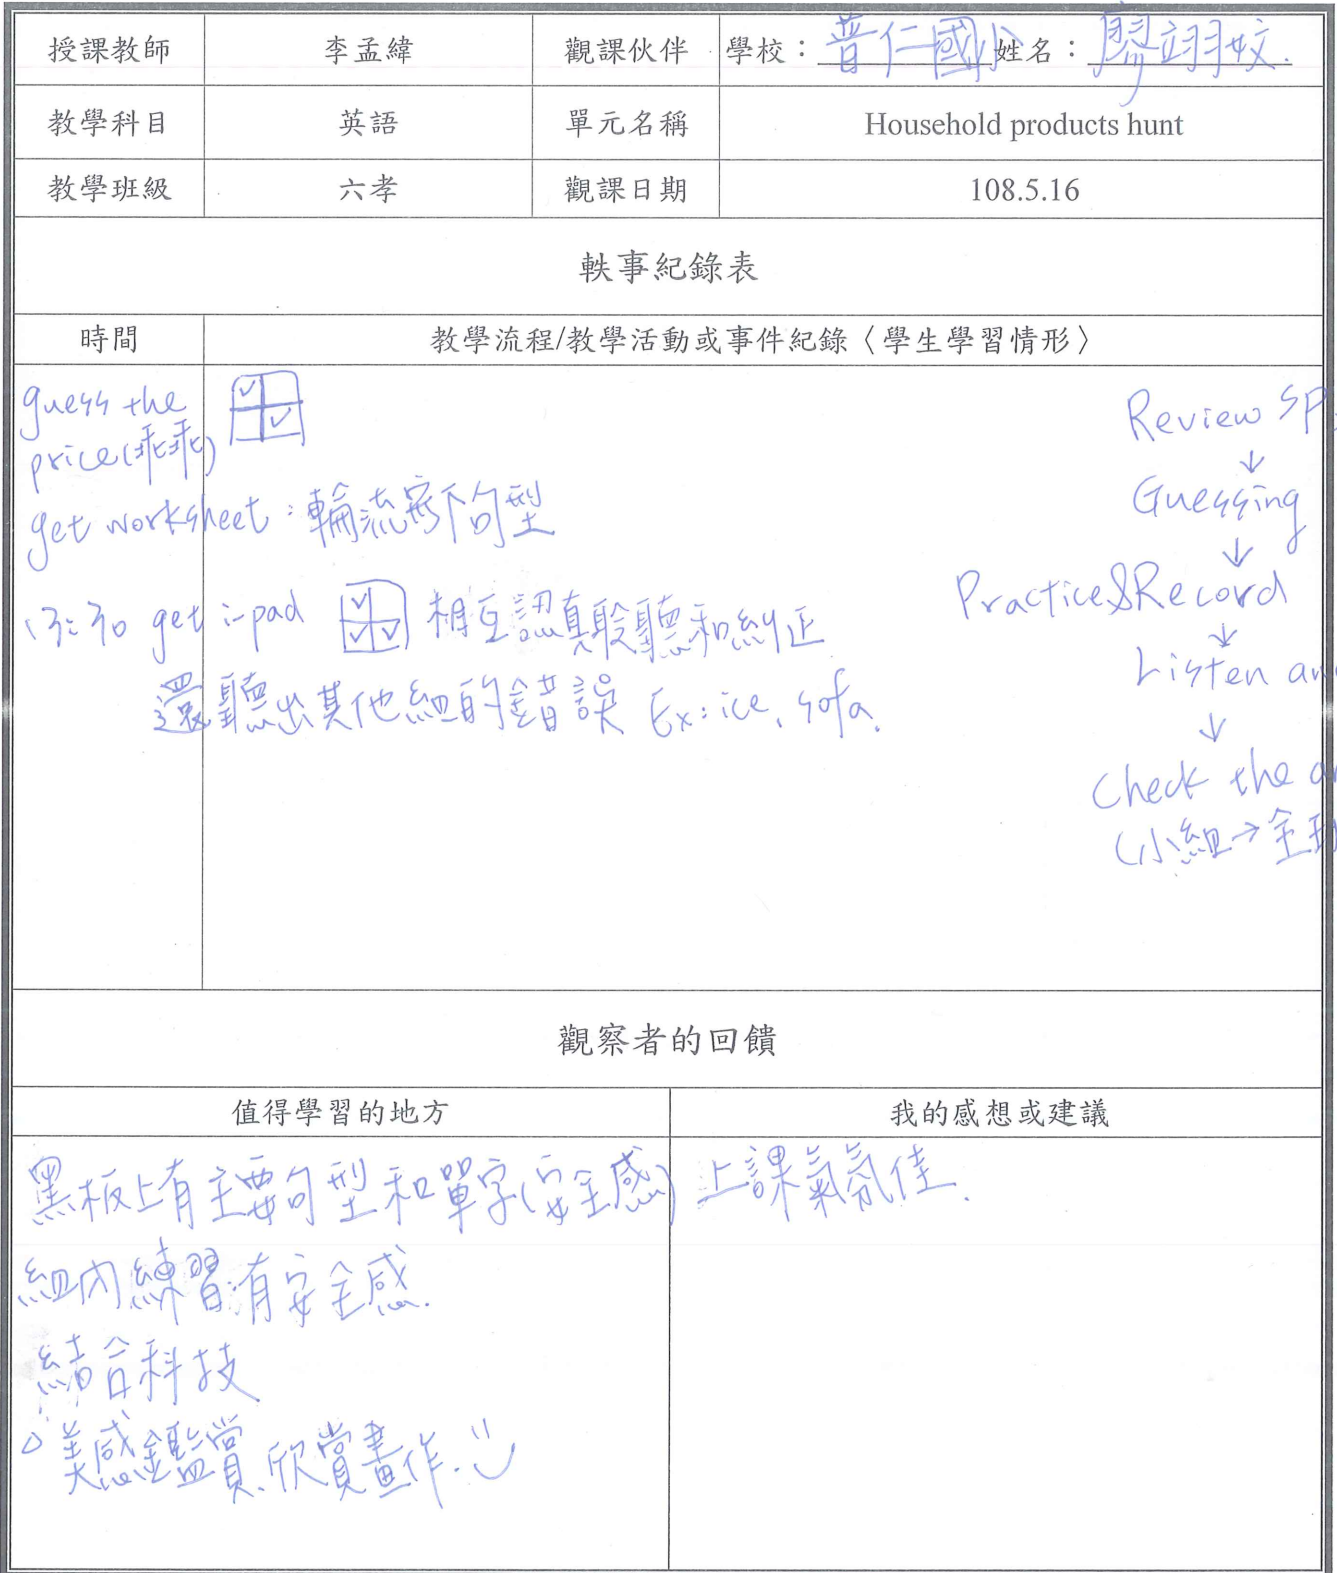 授課教師 李孟緯 觀課伙伴 學校：普仁國小 姓名：廖翊妏.
教學科目 英語 單元名稱 Household products hunt
教學班級 六孝 觀課日期 108.5.16
軼事紀錄表
時間 教學流程/教學活動或事件紀錄〈學生學習情形〉
guess the
price(乖乖)
get worksheet：輪流寫下句型
13:30 get i-pad 相互認真聆聽和糾正
還聽出其他組的錯誤 Ex: ice, sofa.
Review
↓
Guessing
↓
Practice&Record
↓
Listen
↓
Check the
(小組→全
觀察者的回饋
值得學習的地方 我的感想或建議
黑板上有主要句型和單字(安全感)
組內練習:有安全感.
結合科技
美感鑑賞、欣賞畫作.
上課氣氛佳.